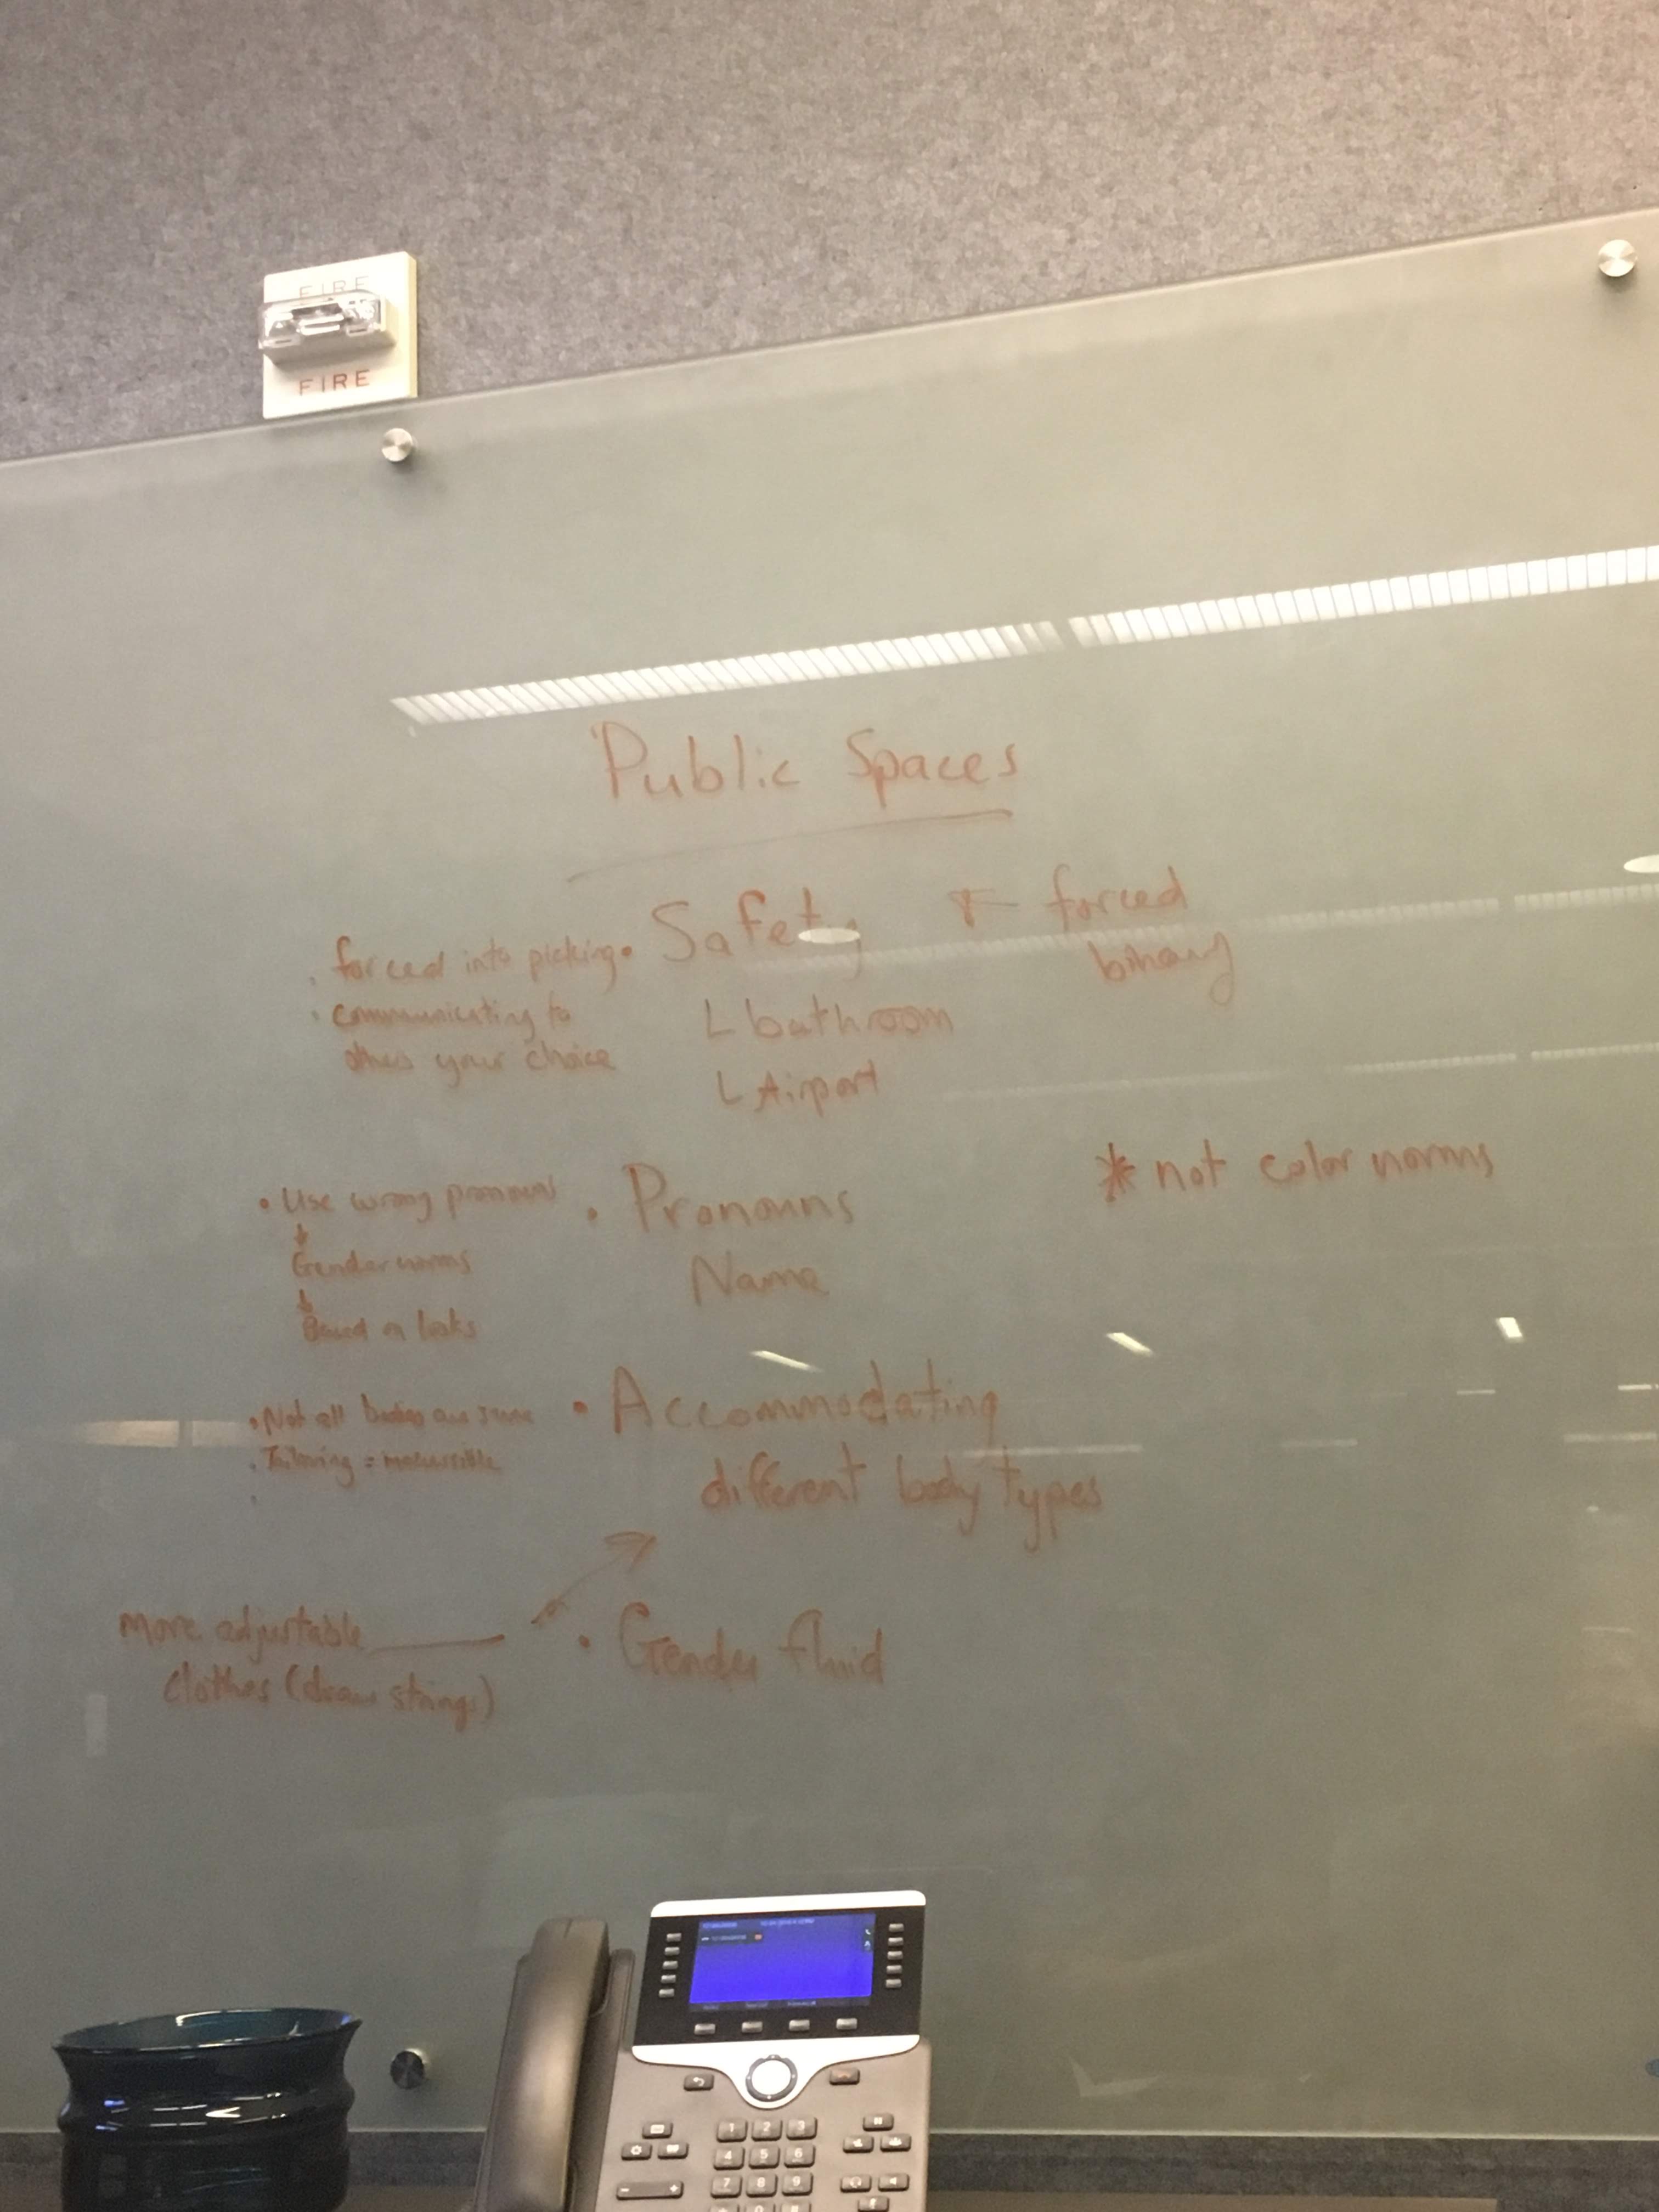 FIRE
FIRE
Public Spaces
• Safety ← forced
binary
L bathroom
L Airport
• forced into picking
• communicating to
others your choice
* not color norms
• Pronouns
Name
• Use wrong pronouns
↓
Gender norms
↓
Based on looks
• Accommodating
different body types
• Not all bodies are same
• Tailoring =
• Gender fluid
more adjustable
clothes (draw strings)
1 2 3
4 5 6
7 8 9
0 #